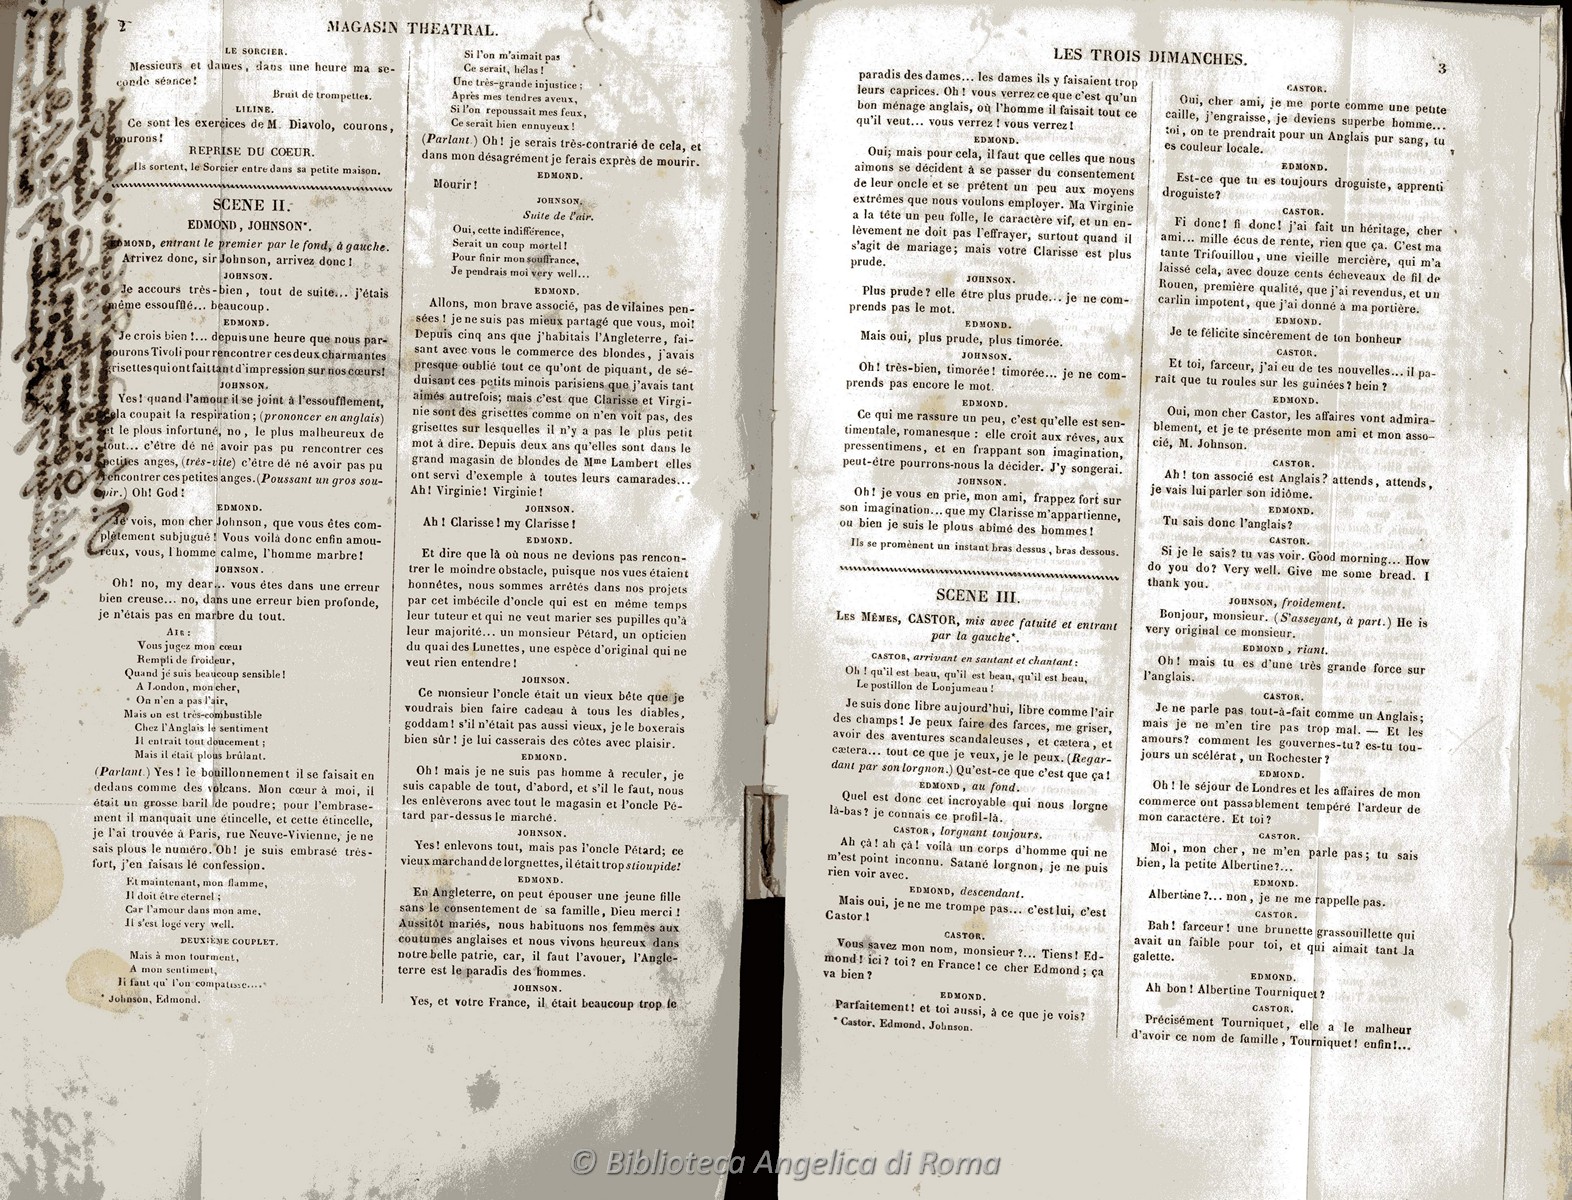 2
MAGASIN THEATRAL.
LE SORCIER.
Messieurs et dames, dans une heure ma se-
conde séance!
Bruit de trompettes.
LILINE.
Ce sont les exercices de M. Diavolo, courons,
courons!
REPRISE DU CŒUR.
Ils sortent, le Sorcier entre dans sa petite maison.
SCENE II.
EDMOND, JOHNSON*.
EDMOND, entrant le premier par le fond, à gauche.
Arrivez donc, sir Johnson, arrivez donc!
JOHNSON.
Je accours très-bien, tout de suite... j'étais
même essoufflé... beaucoup.
EDMOND.
Je crois bien!... depuis une heure que nous par-
courons Tivoli pour rencontrer ces deux charmantes
grisettes qui ont fait tant d'impression sur nos cœurs!
JOHNSON.
Yes! quand l'amour il se joint à l'essoufflement,
cela coupait la respiration; (prononcer en anglais)
et le plous infortuné, no, le plus malheureux de
tout... c'être dé né avoir pas pu rencontrer ces
petites anges, (très-vite) c'être dé né avoir pas pu
rencontrer ces petites anges. (Poussant un gros sou-
pir.) Oh! God!
EDMOND.
Je vois, mon cher Johnson, que vous êtes com-
plètement subjugué! Vous voilà donc enfin amou-
reux, vous, l'homme calme, l'homme marbre!
JOHNSON.
Oh! no, my dear... vous êtes dans une erreur
bien creuse... no, dans une erreur bien profonde,
je n'étais pas en marbre du tout.
AIR:
Vous jugez mon cœur
Rempli de froideur,
Quand je suis beaucoup sensible!
A London, mon cher,
On n'en a pas l'air,
Mais on est très-combustible
Chez l'Anglais le sentiment
Il entrait tout doucement;
Mais il était plous brûlant.
(Parlant.) Yes! le bouillonnement il se faisait en
dedans comme des volcans. Mon cœur à moi, il
était un grosse baril de poudre; pour l'embrase-
ment il manquait une étincelle, et cette étincelle,
je l'ai trouvée à Paris, rue Neuve-Vivienne, je ne
sais plous le numéro. Oh! je suis embrasé très-
fort, j'en faisais lé confession.
Et maintenant, mon flamme,
Il doit être éternel;
Car l'amour dans mon ame,
Il s'est logé very well.
DEUXIÈME COUPLET.
Mais à mon tourment,
A mon sentiment,
Il faut qu' l'on compatisse....
* Johnson, Edmond.
Si l'on m'aimait pas
Ce serait, hélas!
Une très-grande injustice;
Après mes tendres aveux,
Si l'on repoussait mes feux,
Ce serait bien ennuyeux!
(Parlant.) Oh! je serais très-contrarié de cela, et
dans mon désagrément je ferais exprès de mourir.
EDMOND.
Mourir!
JOHNSON.
Suite de l'air.
Oui, cette indifférence,
Serait un coup mortel!
Pour finir mon souffrance,
Je pendrais moi very well...
EDMOND.
Allons, mon brave associé, pas de vilaines pen-
sées! je ne suis pas mieux partagé que vous, moi!
Depuis cinq ans que j'habitais l'Angleterre, fai-
sant avec vous le commerce des blondes, j'avais
presque oublié tout ce qu'ont de piquant, de sé-
duisant ces petits minois parisiens que j'avais tant
aimés autrefois; mais c'est que Clarisse et Virgi-
nie sont des grisettes comme on n'en voit pas, des
grisettes sur lesquelles il n'y a pas le plus petit
mot à dire. Depuis deux ans qu'elles sont dans le
grand magasin de blondes de Mme Lambert elles
ont servi d'exemple à toutes leurs camarades...
Ah! Virginie! Virginie!
JOHNSON.
Ah! Clarisse! my Clarisse!
EDMOND.
Et dire que là où nous ne devions pas rencon-
trer le moindre obstacle, puisque nos vues étaient
honnêtes, nous sommes arrêtés dans nos projets
par cet imbécile d'oncle qui est en même temps
leur tuteur et qui ne veut marier ses pupilles qu'à
leur majorité... un monsieur Pétard, un opticien
du quai des Lunettes, une espèce d'original qui ne
veut rien entendre!
JOHNSON.
Ce monsieur l'oncle était un vieux bête que je
voudrais bien faire cadeau à tous les diables,
goddam! s'il n'était pas aussi vieux, je le boxerais
bien sûr! je lui casserais des côtes avec plaisir.
EDMOND.
Oh! mais je ne suis pas homme à reculer, je
suis capable de tout, d'abord, et s'il le faut, nous
les enlèverons avec tout le magasin et l'oncle Pé-
tard par-dessus le marché.
JOHNSON.
Yes! enlevons tout, mais pas l'oncle Pétard; ce
vieux marchand de lorgnettes, il était trop stioupide!
EDMOND.
En Angleterre, on peut épouser une jeune fille
sans le consentement de sa famille, Dieu merci!
Aussitôt mariés, nous habituons nos femmes aux
coutumes anglaises et nous vivons heureux dans
notre belle patrie, car, il faut l'avouer, l'Angle-
terre est le paradis des hommes.
JOHNSON.
Yes, et votre France, il était beaucoup trop le
LES TROIS DIMANCHES.
3
paradis des dames... les dames ils y faisaient trop
leurs caprices. Oh! vous verrez ce que c'est qu'un
bon ménage anglais, où l'homme il faisait tout ce
qu'il veut... vous verrez! vous verrez!
EDMOND.
Oui; mais pour cela, il faut que celles que nous
aimons se décident à se passer du consentement
de leur oncle et se prêtent un peu aux moyens
extrêmes que nous voulons employer. Ma Virginie
a la tête un peu folle, le caractère vif, et un en-
lèvement ne doit pas l'effrayer, surtout quand il
s'agit de mariage; mais votre Clarisse est plus
prude.
JOHNSON.
Plus prude? elle être plus prude... je ne com-
prends pas le mot.
EDMOND.
Mais oui, plus prude, plus timorée.
JOHNSON.
Oh! très-bien, timorée! timorée... je ne com-
prends pas encore le mot.
EDMOND.
Ce qui me rassure un peu, c'est qu'elle est sen-
timentale, romanesque: elle croit aux rêves, aux
pressentimens, et en frappant son imagination,
peut-être pourrons-nous la décider. J'y songerai.
JOHNSON.
Oh! je vous en prie, mon ami, frappez fort sur
son imagination... que my Clarisse m'appartienne,
ou bien je suis le plous abîmé des hommes!
Ils se promènent un instant bras dessus, bras dessous.
SCENE III.
LES MÊMES, CASTOR, mis avec fatuité et entrant
par la gauche*.
CASTOR, arrivant en sautant et chantant:
Oh! qu'il est beau, qu'il est beau, qu'il est beau,
Le postillon de Lonjumeau!
Je suis donc libre aujourd'hui, libre comme l'air
des champs! Je peux faire des farces, me griser,
avoir des aventures scandaleuses, et cætera, et
cætera... tout ce que je veux, je le peux. (Regar-
dant par son lorgnon.) Qu'est-ce que c'est que ça!
EDMOND, au fond.
Quel est donc cet incroyable qui nous lorgne
là-bas? je connais ce profil-là.
CASTOR, lorgnant toujours.
Ah çà! ah çà! voilà un corps d'homme qui ne
m'est point inconnu. Satané lorgnon, je ne puis
rien voir avec.
EDMOND, descendant.
Mais oui, je ne me trompe pas... c'est lui, c'est
Castor!
CASTOR.
Vous savez mon nom, monsieur?... Tiens! Ed-
mond! ici? toi? en France! ce cher Edmond; ça
va bien?
EDMOND.
Parfaitement! et toi aussi, à ce que je vois?
* Castor, Edmond, Johnson.
CASTOR.
Oui, cher ami, je me porte comme une petite
caille, j'engraisse, je deviens superbe homme...
toi, on te prendrait pour un Anglais pur sang, tu
es couleur locale.
EDMOND.
Est-ce que tu es toujours droguiste, apprenti
droguiste?
CASTOR.
Fi donc! fi donc! j'ai fait un héritage, cher
ami... mille écus de rente, rien que ça. C'est ma
tante Trifouillou, une vieille mercière, qui m'a
laissé cela, avec douze cents écheveaux de fil de
Rouen, première qualité, que j'ai revendus, et un
carlin impotent, que j'ai donné à ma portière.
EDMOND.
Je te félicite sincèrement de ton bonheur
CASTOR.
Et toi, farceur, j'ai eu de tes nouvelles... il pa-
raît que tu roules sur les guinées? hein?
EDMOND.
Oui, mon cher Castor, les affaires vont admira-
blement, et je te présente mon ami et mon asso-
cié, M. Johnson.
CASTOR.
Ah! ton associé est Anglais? attends, attends,
je vais lui parler son idiôme.
EDMOND.
Tu sais donc l'anglais?
CASTOR.
Si je le sais? tu vas voir. Good morning... How
do you do? Very well. Give me some bread. I
thank you.
JOHNSON, froidement.
Bonjour, monsieur. (S'asseyant, à part.) He is
very original ce monsieur.
EDMOND, riant.
Oh! mais tu es d'une très grande force sur
l'anglais.
CASTOR.
Je ne parle pas tout-à-fait comme un Anglais;
mais je ne m'en tire pas trop mal. — Et les
amours? comment les gouvernes-tu? es-tu tou-
jours un scélérat, un Rochester?
EDMOND.
Oh! le séjour de Londres et les affaires de mon
commerce ont passablement tempéré l'ardeur de
mon caractère. Et toi?
CASTOR.
Moi, mon cher, ne m'en parle pas; tu sais
bien, la petite Albertine?...
EDMOND.
Albertine?... non, je ne me rappelle pas.
CASTOR.
Bah! farceur! une brunette grassouillette qui
avait un faible pour toi, et qui aimait tant la
galette.
EDMOND.
Ah bon! Albertine Tourniquet?
CASTOR.
Précisément Tourniquet, elle a le malheur
d'avoir ce nom de famille, Tourniquet! enfin!...
© Biblioteca Angelica di Roma